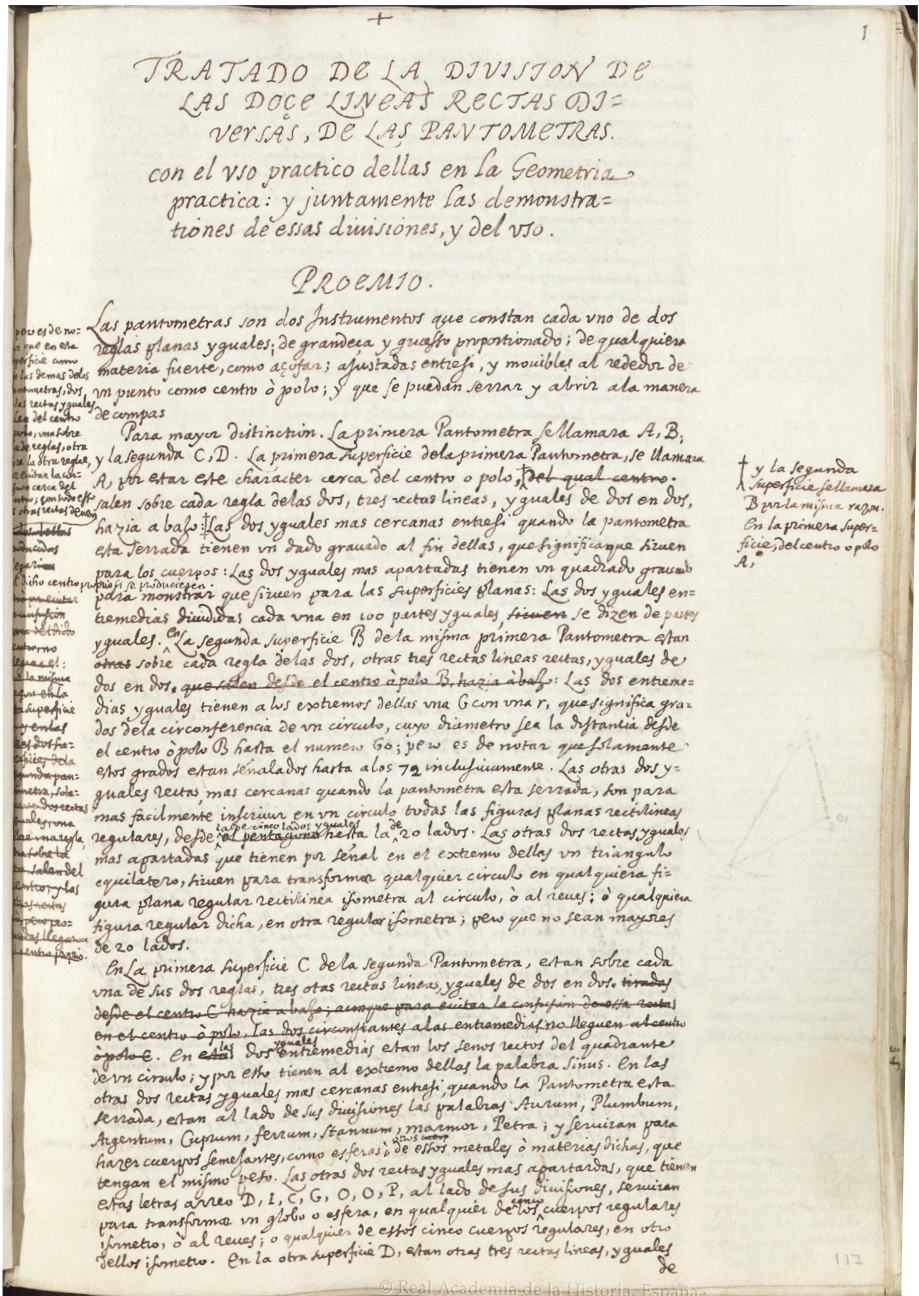 1
TRATADO DE LA DIVISION DE
LAS DOÇE LINEAS RECTAS DI=
VERSAS, DE LAS PANTOMETRAS.
con el vso practico dellas en la Geometria
practica: y juntamente las demonstra=
tiones de essas divisiones, y del vso.
PROEMIO.
Las pantometras son dos Instrumentos que constan cada vno de dos
reglas planas yguales; de grandeça y gruesso proportionado; de qualquiera
materia fuerte, como açofar; ajustadas entresi, y mouibles al rededor de
vn punto como centro ò polo; y que se puedan serrar y abrir ala manera
de compas
Para mayor distinction. La primera Pantometra se llamara A, B;
y la segunda C, D. La primera superficie dela primera Pantometra, se llamara
A, por estar este character cerca del centro o polo; del qual centro.
salen sobre cada regla delas dos, tres rectas lineas, y yguales de dos en dos,
hazia a baso: Las dos yguales mas cercanas entresi quando la pantometra
esta serrada tienen vn dado gravado al fin dellas, que significa que siruen
para los cuerpos: Las dos yguales mas apartadas tienen vn quadrado gravado
para monstrar que siruen para las superficies planas: Las dos yguales en=
tremedias divididas cada vna en 100 partes yguales, siruen se dizen de partes
yguales. en La segunda superficie B de la misma primera Pantometra estan
otras sobre cada regla delas dos, otras tres rectas lineas rectas, yguales de
dos en dos, que salen desde el centro ò polo B, hazia à baxo: Las dos entreme=
dias yguales tienen a los extremos dellas vna G con vna r, que significa gra=
dos dela circonferencia de vn circulo, cuyo diametro sea la distancia desde
el centro ò polo B hasta el numero 60; pero es de notar que solamente
estos grados estan señalados hasta alos 72 inclusivamente. Las otras dos y=
guales rectas, mas cercanas quando la pantometra esta serrada, son para
mas facilmente inscriuir en vn circulo todas las figuras planas rectilineas
regulares, desde la de cinco lados yguales el pentagono hasta la de 20 lados. Las otras dos rectas yguales
mas apartadas que tienen por señal en el extremo dellas vn triangulo
equilatero, siruen para transformar qualquier circulo en qualquiera fi=
gura plana regular rectilinea isometra al circulo, ò al reues; ò qualquiera
figura regular dicha, en otra regular isometra; pero que no sean mayores
de 20 lados.
En La primera superficie C de la segunda Pantometra, estan sobre cada
vna de sus dos reglas, tres otas rectas lineas, yguales de dos en dos. tiradas
desde el centro C hazia a baxo; aunque para euitar la confusion de essa rectas
en el centro ò polo, las dos circonstantes alas entremedias no lleguen al centro
ò polo C. En estas las dos yguales entremedias estan los senos rectos del quadrante
de vn circulo; y por esto tienen al extremo dellas la palabra Sinus. En las
otras dos rectas yguales mas cercanas entresi, quando la Pantometra esta
serrada, estan al lado de sus divisiones las palabras Aurum, Plumbum,
Argentum, Cuprum, ferrum, Stannum, marmor, Petra; y serviran para
hazer cuerpos semejantes, como esferas ò de estos metales ò materias dichas, que
tengan el mismo peso. Las otras dos rectas yguales mas apartadas, que tienen
estas letras D, I, C, G, O, O, P, al lado de sus divisiones, serviran
para transformar vn globo o esfera, en qualquier de los cinco cuerpos regulares
isometro, ò al reues; o qualquier de estos cinco cuerpos regulares, en otro
dellos isometro. En la otra superficie D, estan otras tres rectas lineas, yguales
de
pero es de no=
que en esta
como
las demas delas
pantometras, dos
las rectas yguales
del centro
polo, vna sobre
reglas, otra
la otra regla,
cerca del
con todo esso
otras rectas
dicho centro proprio si se produciessen
y la segunda
superficie se llamara
B por la misma razon.
En la primera super=
ficie, del centro o polo
A,
117
© Real Academia de la Historia. España